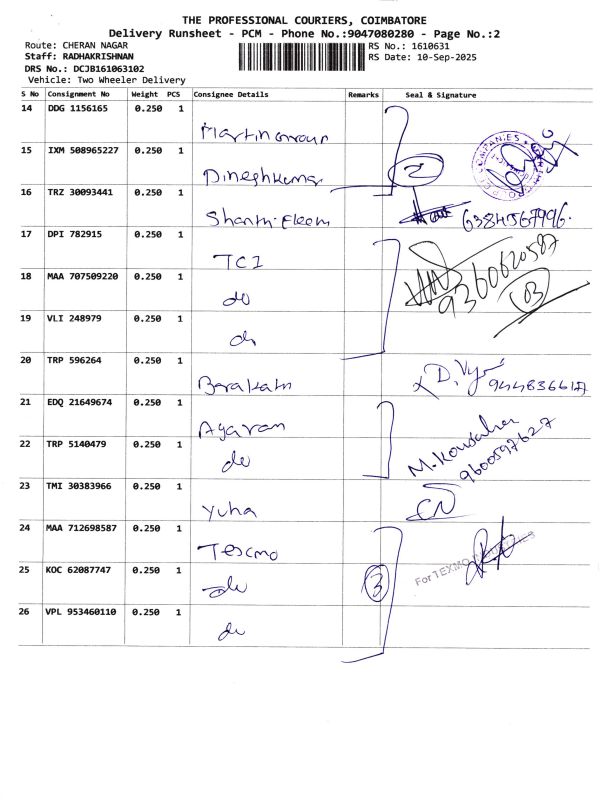 THE PROFESSIONAL COURIERS, COIMBATORE
Delivery Runsheet - PCM - Phone No.:9047080280 - Page No.:2
Route: CHERAN NAGAR
RS No.: 1610631
Staff: RADHAKRISHNAN
RS Date: 10-Sep-2025
DRS No.: DCJB161063102
Vehicle: Two Wheeler Delivery
S No Consignment No Weight PCS Consignee Details Remarks Seal & Signature
14 DDG 1156165 0.250 1
15 IXM 508965227 0.250 1 Dineshkumar 2
16 TRZ 30093441 0.250 1 Shanthi 6384567996.
17 DPI 782915 0.250 1 TCI
18 MAA 707509220 0.250 1 do 9360620587 03
19 VLI 248979 0.250 1 do
20 TRP 596264 0.250 1 9448366127
21 EDQ 21649674 0.250 1 Agaram M. Kousalya
22 TRP 5140479 0.250 1 do 9600597627
23 TMI 30383966 0.250 1 Yuha
24 MAA 712698587 0.250 1 Texmo
25 KOC 62087747 0.250 1 do 3 For TEXMO INDUSTRIES
26 VPL 953460110 0.250 1 do